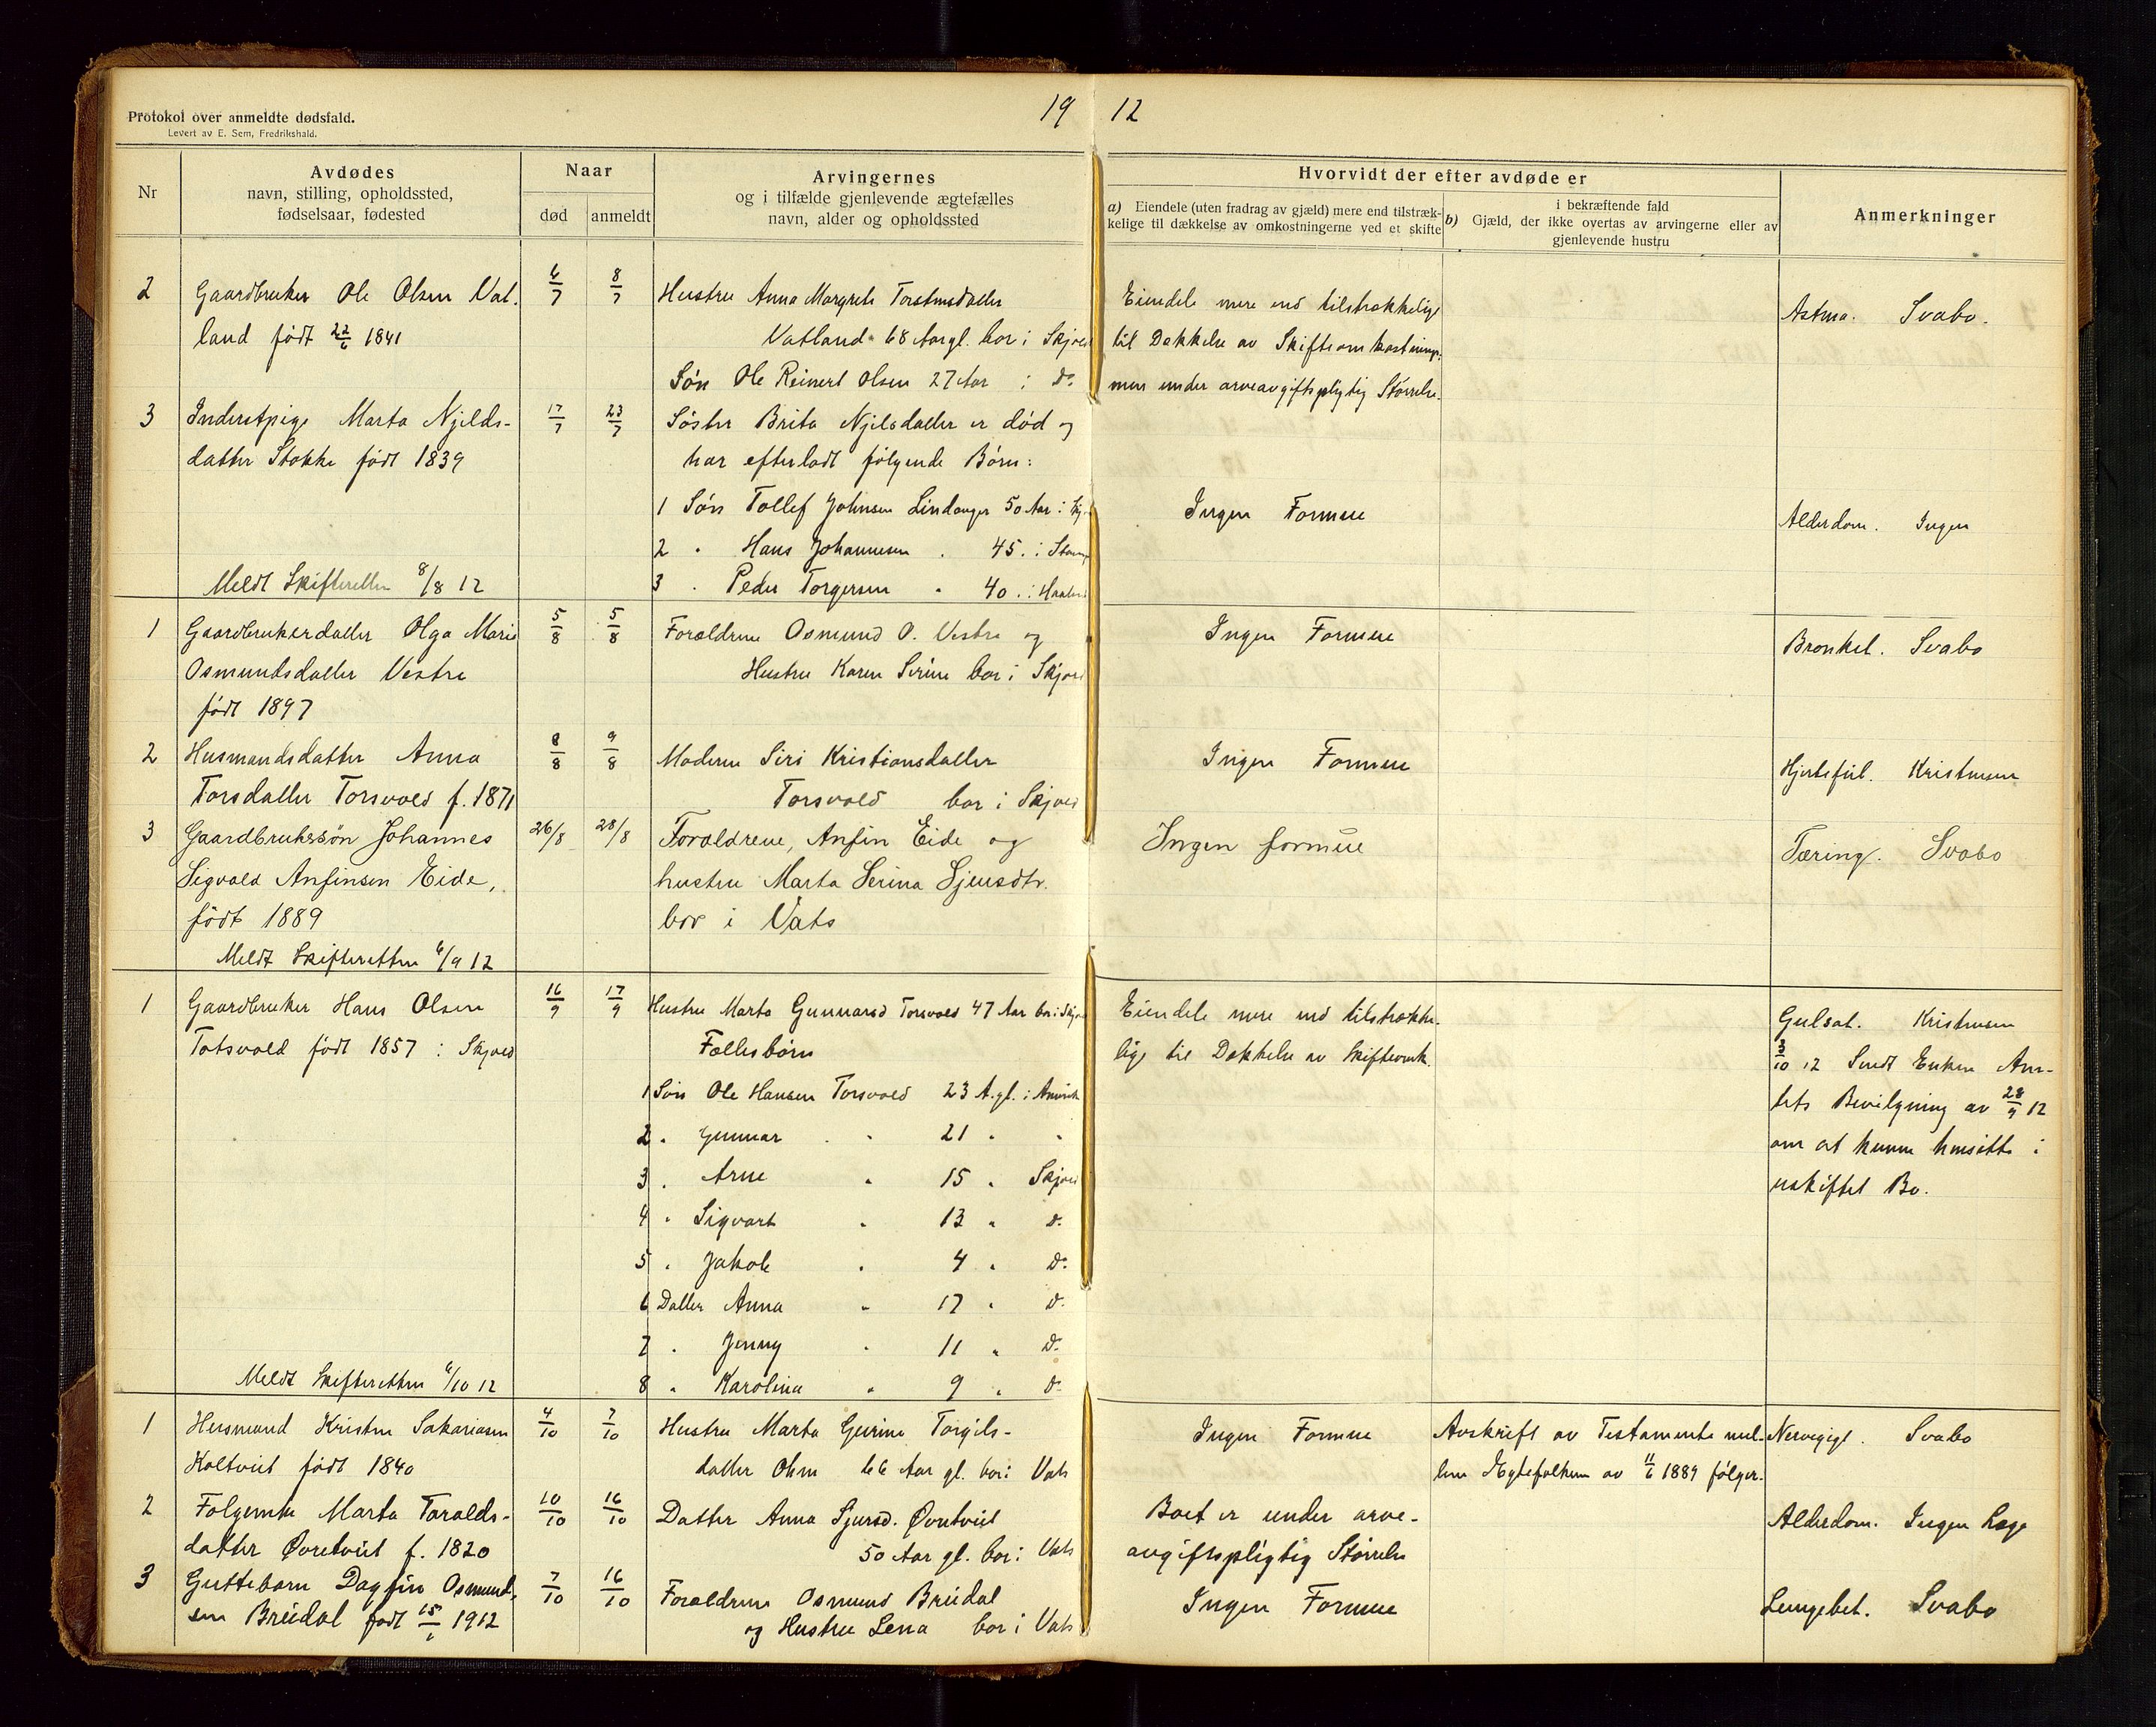 Protokol over anmeldte dødsfald.
Levert av E. Sem, Fredrikshald.
19 12
Nr
Avdødes
navn, stilling, opholdssted,
fødselsaar, fødested
Naar
død
anmeldt
Arvingernes
og i tilfælde gjenlevende ægtefælles
navn, alder og opholdssted
Hvorvidt der efter avdøde er
a) Eiendele (uten fradrag av gjæld) mere end tilstræk-
kelige til dækkelse av omkostningerne ved et skifte
i bekræftende fald
b) Gjæld, der ikke overtas av arvingerne eller av
gjenlevende hustru
Anmerkninger
2 Gaardbruker Ole Olsen Vat-
land født 22/6 1841
6/7 8/7
Hustru Anna Margrete Torstensdatter
Vatland 68 Aar gl. bor i Skjold
Søn Ole Reinert Olsen 27 Aar i do
Eiendele mere end tilstrækkelige
til Dækkelse av Skifteomkostninger
men under arveavgiftspligtig Størrelse.
Astma. Svabo.
3 Inderstpige Marta Njelds-
datter Stakke født 1839
17/7 23/7
Søster Brita Njelsdatter er død og
har efterladt følgende Børn:
1 Søn Tollef Johnsen Lindanger 50 Aar i
2 " Hans Johannesen " 45 " i
3 " Peder Torgersen " 40 " i
Ingen Formue
Alderdom. Ingen
Meldt Skifteretten 8/8 12
1 Gaardbrukerdatter Olga Marie
Osmundsdatter Vestre
født 1897
5/8 5/8
Forældrene Osmund O. Vestre og
Hustru Karen Serine bor i Skjold
Ingen Formue
Bronkit. Svabo
2 Husmandsdatter Anna
Torsdatter Torsvold f. 1871
8/8 9/8
Moderen Siri Kristiansdatter
Torsvold bor i Skjold
Ingen Formue
Hjertefeil. Kristensen
3 Gaardbrukersøn Johannes
Sigvald Anfinsen Eide,
født 1889
26/8 28/8
Forældrene, Anfin Eide og
hustru Marta Serina Sjursdtr.
bor i Vats
Ingen formue
Tæring. Svabo
Meldt Skifteretten 6/9 12
1 Gaardbruker Hans Olsen
Totsvold født 1857 i Skjold
16/9 17/9
Hustru Marta Gunnarsd Torsvold 47 Aar bor i Skjold
Fællesbørn
1 Søn Ole Hansen Torsvold 23 A. gl. i Amerik
2 " Gunnar " " 21 " "
3 " Arne " 15 " Skjold
4 " Sigvart " 13 " do
5 " Jakob " 4 " do
6 Datter Anna " 17 " do
7 " Jenny " 11 " do
8 " Karolina " 9 " do
Eiendele mere end tilstrække-
lige til Dækkelse av Skifteomk.
Gulsot. Kristensen
3/10 12 Sendt Enken Am-
tets Bevilgning av 28/9 12
om at kunne hensitte i
uskiftet Bo.
Meldt Skifteretten 6/10 12
1 Husmand Kristen Sakariasen
Koltveit født 1840
4/10 7/10
Hustru Marta Gurine Torgils-
datter Ohm 66 Aar gl. bor i Vats
Ingen Formue
Avskrift av Testamente mel-
lem Ægtefolkene av 11/6 1889 følger.
Nervegigt. Svabo
2 Følgemke Marta Taralds-
datter Øvretveit f. 1820
10/10 16/10
Datter Anna Sjursd. Øvretveit
50 Aar gl. bor i Vats
Boet er under arve-
avgiftspligtig Størrelse
Alderdom. Ingen Læge
3 Guttebarn Dagfin Osmund-
sen Breidal født 15/6 1912
7/10 16/10
Forældrene Osmund Breidal
og Hustru Lena bor i Vats
Ingen Formue
Lungebet. Svabo